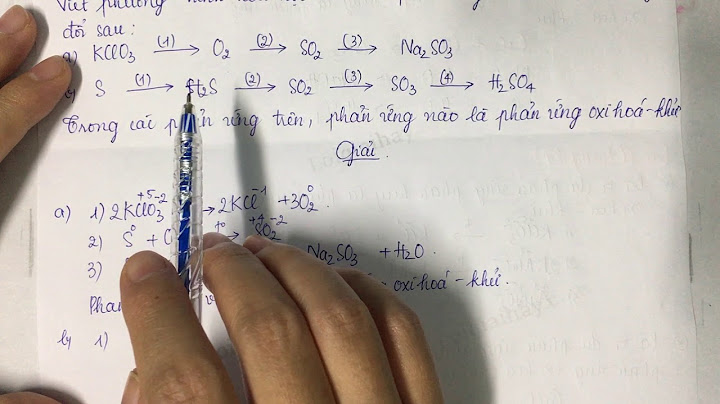 Viết phương
đồ sau :
a) KClO₃ —(1)→ O₂ —(2)→ SO₂ —(3)→ Na₂SO₃
S —(1)→ H₂S —(2)→ SO₂ —(3)→ SO₃ —(4)→ H₂SO₄
Trong các phản ứng trên, phản ứng nào là phản ứng oxi hoá - khử
Giải.
a) 1) 2KClO₃ → 2KCl + 3O₂.
+5 -2 -1 0
2) S + → SO₂
0 t° +4 -2
3) Na₂SO₃ + H₂O.
oxi hoá - khử.
b) 1)